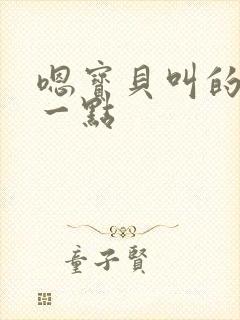 嗯寶貝叫的
一點
童子賢